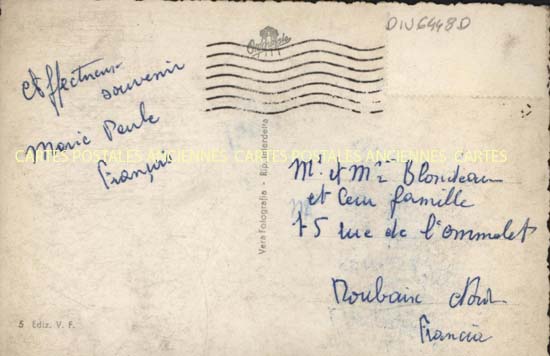 DIV6448D
Affectueux
souvenir
Marie Paule
François
CARTES POSTALES ANCIENNES CARTES POSTALES ANCIENNES CARTES
Vera Fotografia - Rip. interdetta
Mr et Mme Blondeau
et leur famille
75 rue de l'ommelet
Roubaix Nord
Francia
5 Ediz. V. F.